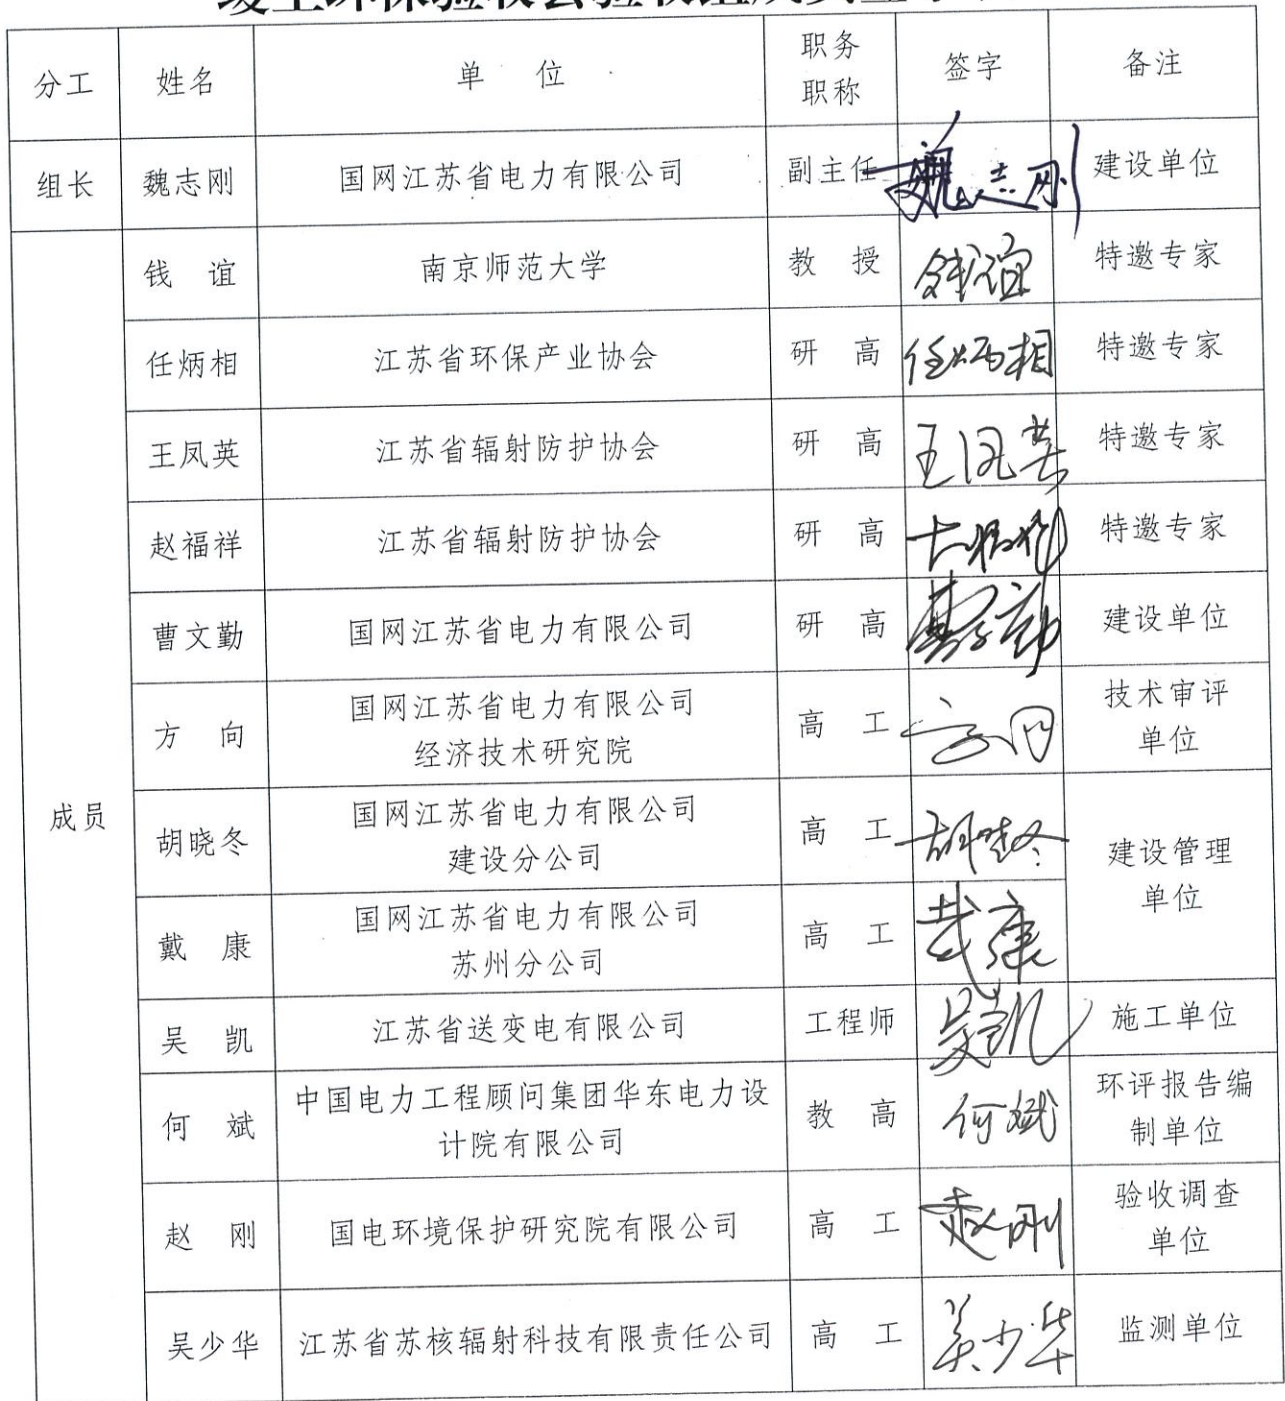 竣工环保验收会验收组成员签字表
分工 姓名 单 位 职务 职称 签字 备注
组长 魏志刚 国网江苏省电力有限公司 副主任 魏志刚 建设单位
成员
钱 谊 南京师范大学 教 授 钱谊 特邀专家
任炳相 江苏省环保产业协会 研 高 任炳相 特邀专家
王凤英 江苏省辐射防护协会 研 高 王凤英 特邀专家
赵福祥 江苏省辐射防护协会 研 高 赵福祥 特邀专家
曹文勤 国网江苏省电力有限公司 研 高 曹文勤 建设单位
方 向 国网江苏省电力有限公司 高 工 方向 技术审评
经济技术研究院 单位
胡晓冬 国网江苏省电力有限公司 高 工 胡晓冬 建设管理
建设分公司 单位
戴 康 国网江苏省电力有限公司 高 工 戴康
苏州分公司
吴 凯 江苏省送变电有限公司 工程师 吴凯 施工单位
何 斌 中国电力工程顾问集团华东电力设 教 高 何斌 环评报告编
计院有限公司 制单位
赵 刚 国电环境保护研究院有限公司 高 工 赵刚 验收调查
单位
吴少华 江苏省苏核辐射科技有限责任公司 高 工 吴少华 监测单位